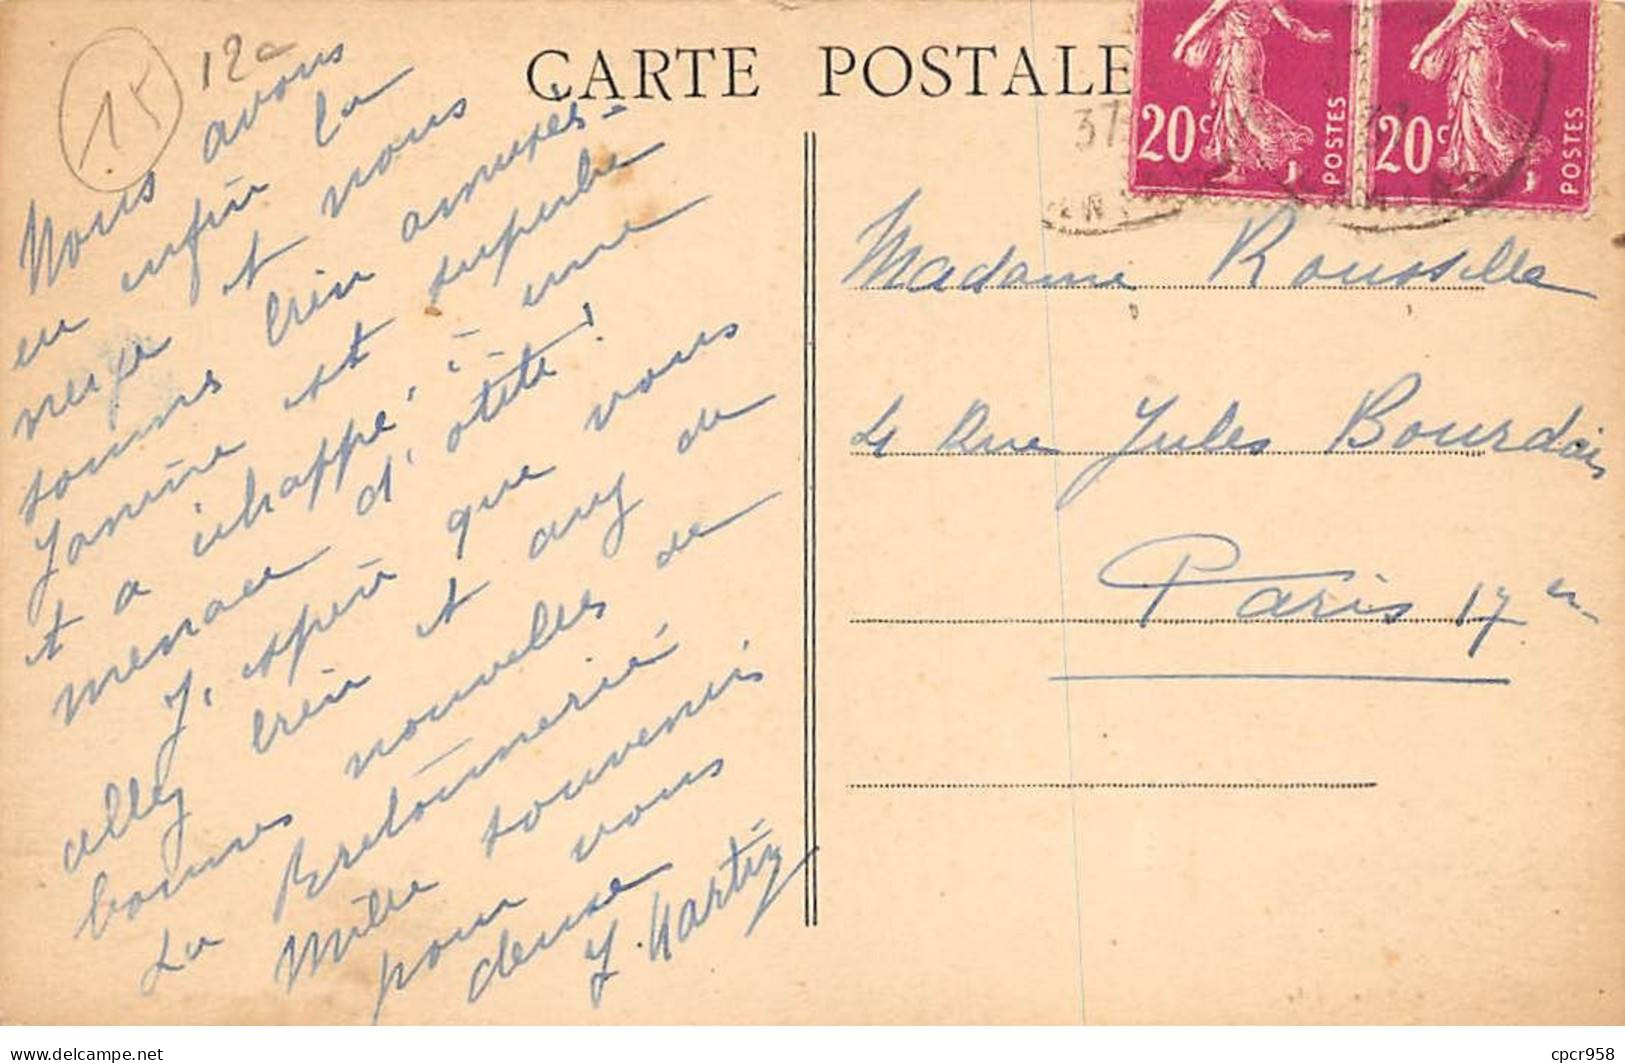 15
12c
CARTE POSTALE
37
20c POSTES
20c POSTES
Nous avons
eu enfin la
neige et nous
sommes bien amusés
Janine est superbe
et a échappé, à une
menace d'otite!
J'espère que vous
allez bien et avez de
bonnes nouvelles de
La Bretonnerie
Mille souvenirs
pour vous
deux
J. Martiz
Madame Roussille
4 Rue Jules Bourdais
Paris 17e
cpcr958